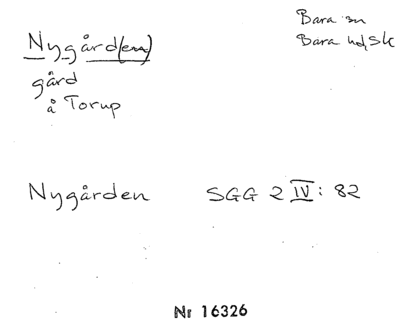 Bara sn
Bara hd, Sk
Nygård(en)
gård
å Torup
Nygården SGG 2 IV: 82
Nr 16326